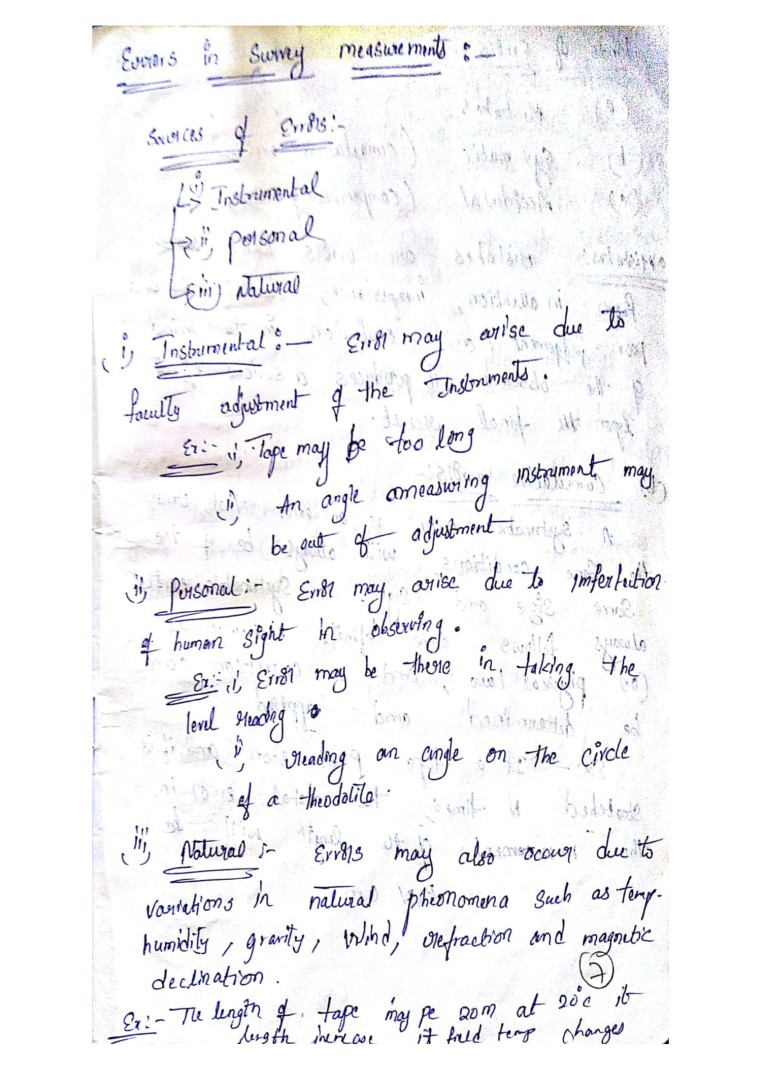 Errors in Survey measurements :-
Sources of Errors:-
i) Instrumental
ii) personal
iii) Natural
i) Instrumental :- Error may arise due to
faculty adjustment of the Instruments.
Ex:- i) Tape may be too long
ii) An angle measuring instrument may
be out of adjustment
ii) Personal :- Error may arise due to imperfection
of human sight in observing.
Ex:- i) Error may be there in taking the
level reading
ii) reading an angle on the circle
of a theodolite.
iii) Natural :- Errors may also occur due to
variations in natural pheonomena such as temp.
humidity, gravity, wind, refraction and magnetic
declination.
7
Ex:- The length of tape may pe 20m at 20°c it
length increase if field temp changes